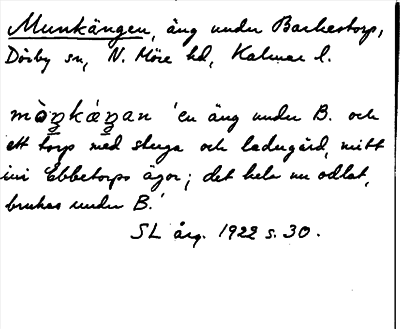 Munkängen, äng under Barkestorp,
Dörby sn, N. Möre hd, Kalmar l.
mòn̠kán̠an 'en äng under B. och
ett torp med stuga och ladugård, mitt
ini Ebbetorps ägor; det hela nu odlat,
brukas under B.'
SL årg. 1922 s. 30.